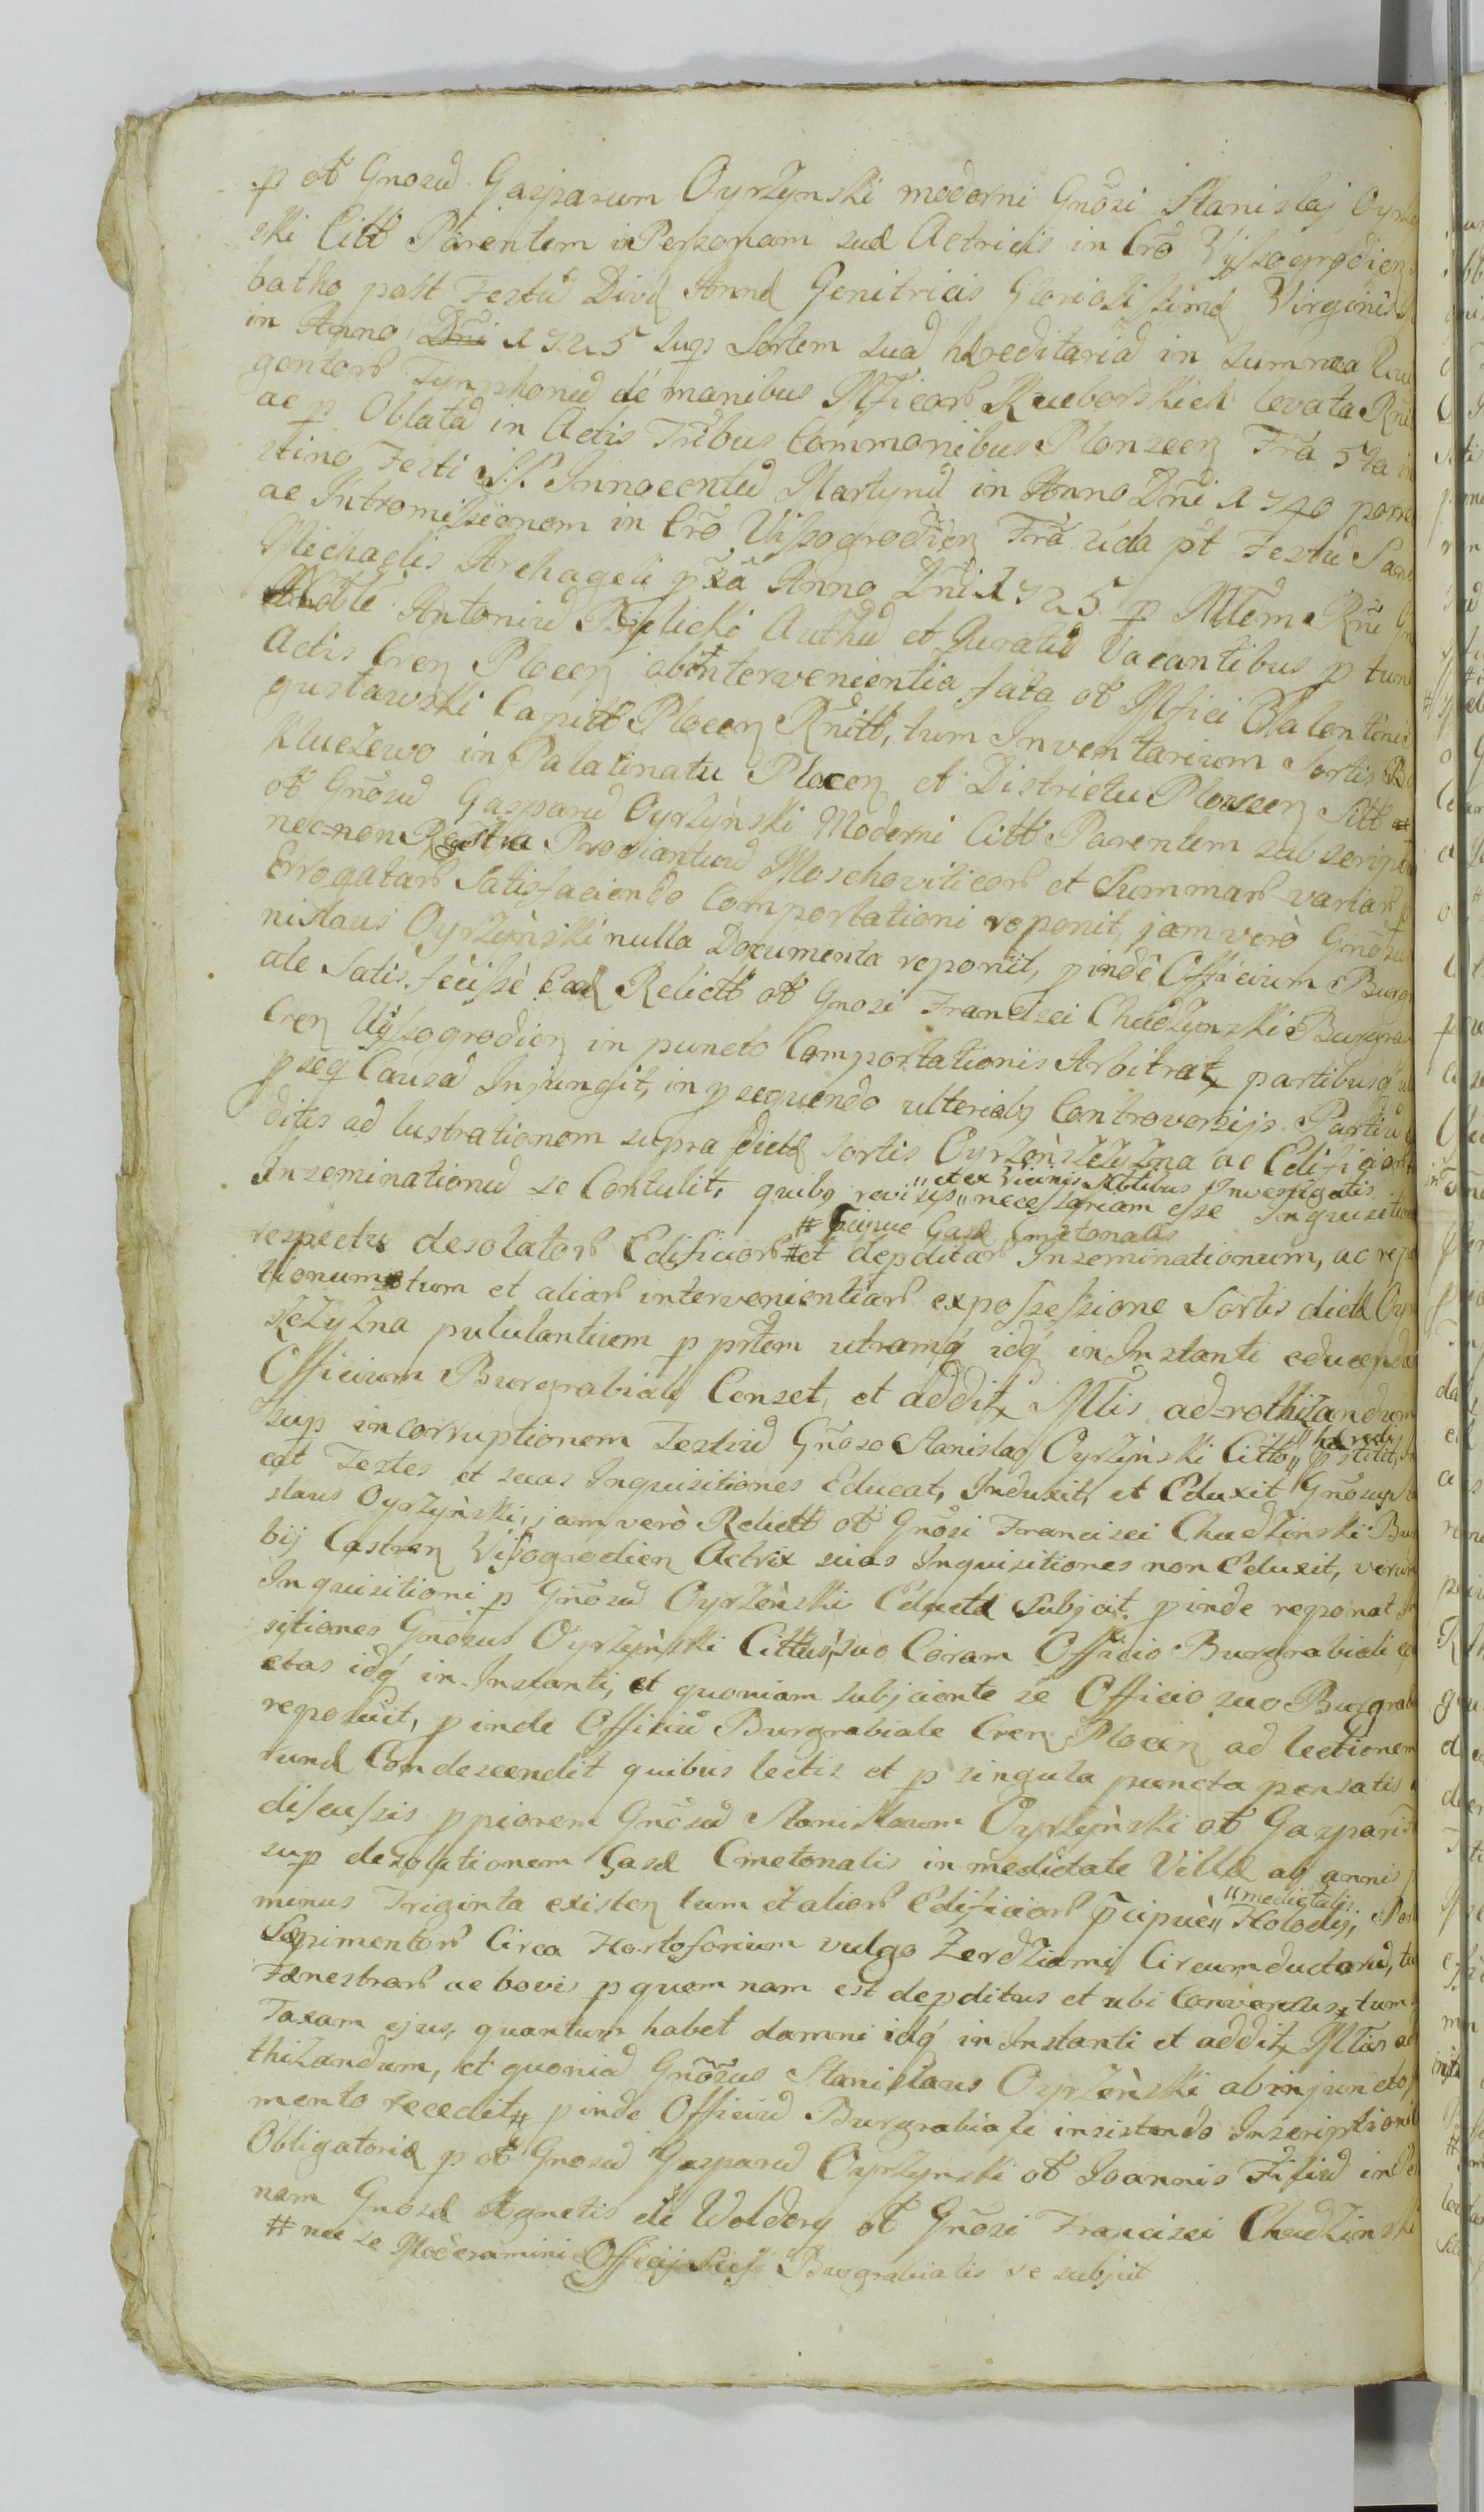 p ot Gnosũ Gasparum Oyrzynski moderni Gnõsi Stanislaj Oyrz
ski Citt Parentem in Personam suæ Actricis in Crõ Vyssogrodien
batho post Festũ Divæ Annæ Genitricis Gloriosissimæ Virginis
in Anno Dni 1725 sup Sortem suã hæreditariã in summa
gentorũ Tynphonũ de manibus Mficorũ levata Rñi
ac p Oblatã in Actis Tribus Communibus Plonscen Fra 5ta in
stino Festi S.S. Innocentũ Martyrũ in Anno Dni 1740 porre
ac Intromissionem in Crõ Vissogrodien Fra 2da pt Festũ San
Michaelis Archageli pxã Anno Dni 1725 p Mtem Rñi
Noble Antoniũ Bielicki Authũ et Juratũ Vacantibus p tunc
Actis Cren Plocen ob interveniente fata ot Mfici Valentini
gustawski Capitt Plocen Rñitt, tum Inventarium Sortis
Kluczewo in Palatinatu Plocen et Districtu Plonscen Sitt
ot Gñosũ Gasparũ Oyrzyński Moderni Citt Parentem subscript
nec-non Rgstra Proviantuũ Moschoviticorũ et Summarũ variarũ
Errogatarũ Satisfaciendo Comportationi reponit, jam verò Gñosus
nislaus Oyrzyński nulla Documenta reponit, pinde Officium Burg
ale Satis-fecisse Eæ Relictt ot Gnosi Francisci Chudzynski Burgra
Cren Vyssogrodien in puncto Comportationis Arbitrat, partibusq
pseq Causã Injungit, in psequendo ulteriobg Controversijs Partiũ
ditis ad lustrationem supra dictæ Sortis Oyrzeńszczyzna ac Edificiorũ
Inseminationũ se Contulit, quibg revisis necessariam esse Inquisition
"et ex Vicinis Nobtibus Investigatis
respectu desolatorũ Edificiorũ # et depditarũ Inseminationum, ac repa
# Casæ Cmetonalis
tionum tum et aliarũ intervenientiarũ expossessione Sortis dictæ Oyr
szczyzna pululantium p prtem utramq idq in Instanti educendũ
Officium Burgrabiale Censet, et addit Mtis ad-rothizandum
sup incorruptionem Testiũ Gñoso Stanislao Oyrzyński Citto " hæredi p stitit,
eat Testes et suas Inquisitiones Educat, Induxit, et Eduxit Gñosus
slaus Oyrzyński, jam verò Relictt ot Gñosi Francisci Chudzinski Bur
bij Castren Vissogrodien Actrix suas Inquisitiones non Eduxit, verum
Inquisitioni p Gñosũ Oyrzeński Eductæ Subjcit. pinde reponat In
sitiones Gnosus Oyrzyński Cittus, suo Coram Officio Burgrabiali
ctas idq in Instanti, et quoniam subjciente se Officio suo Burgrab
reposuit, pinde Officiũ Burgrabiale Cren Plocen ad lectionem
rund Condescendit quibus lectis et p singula puncta pensatis
discussis ppiorem Gnõsũ Stanislaum Oyrzyński ot Gaspari
sup desolationem Casæ Cmetonalis in medietate Villæ ab annis
minus Triginta existen tum et aliorũ Edificiorũ pcipuè " medietatis Holodij,
Sepimentorũ Circa Hortosorium vulgo Zerdziami Circumductarũ,
Fenestrarũ ac bovis p quem nam est depditus et ubi Conversus, tum
Taxam ejus, quantum habet damni idq in Instanti et addit Mtis ad
thizandum, et quoniã Gnõsus Stanislaus Oyrzeński ab injuncto
mento recedit # pinde Officiũ Burgrabiale insistendo Inscriptioni
Obligatoriæ p ot Gnosũ Gasparũ Oyrzynski ot Joannis Filiũ in
nam Gnosæ Agnetis de Woldorg ot Gnõsi Francisci Chudzinski
# nec se Moderamini Officij Sui Burgrabialis se subjcit